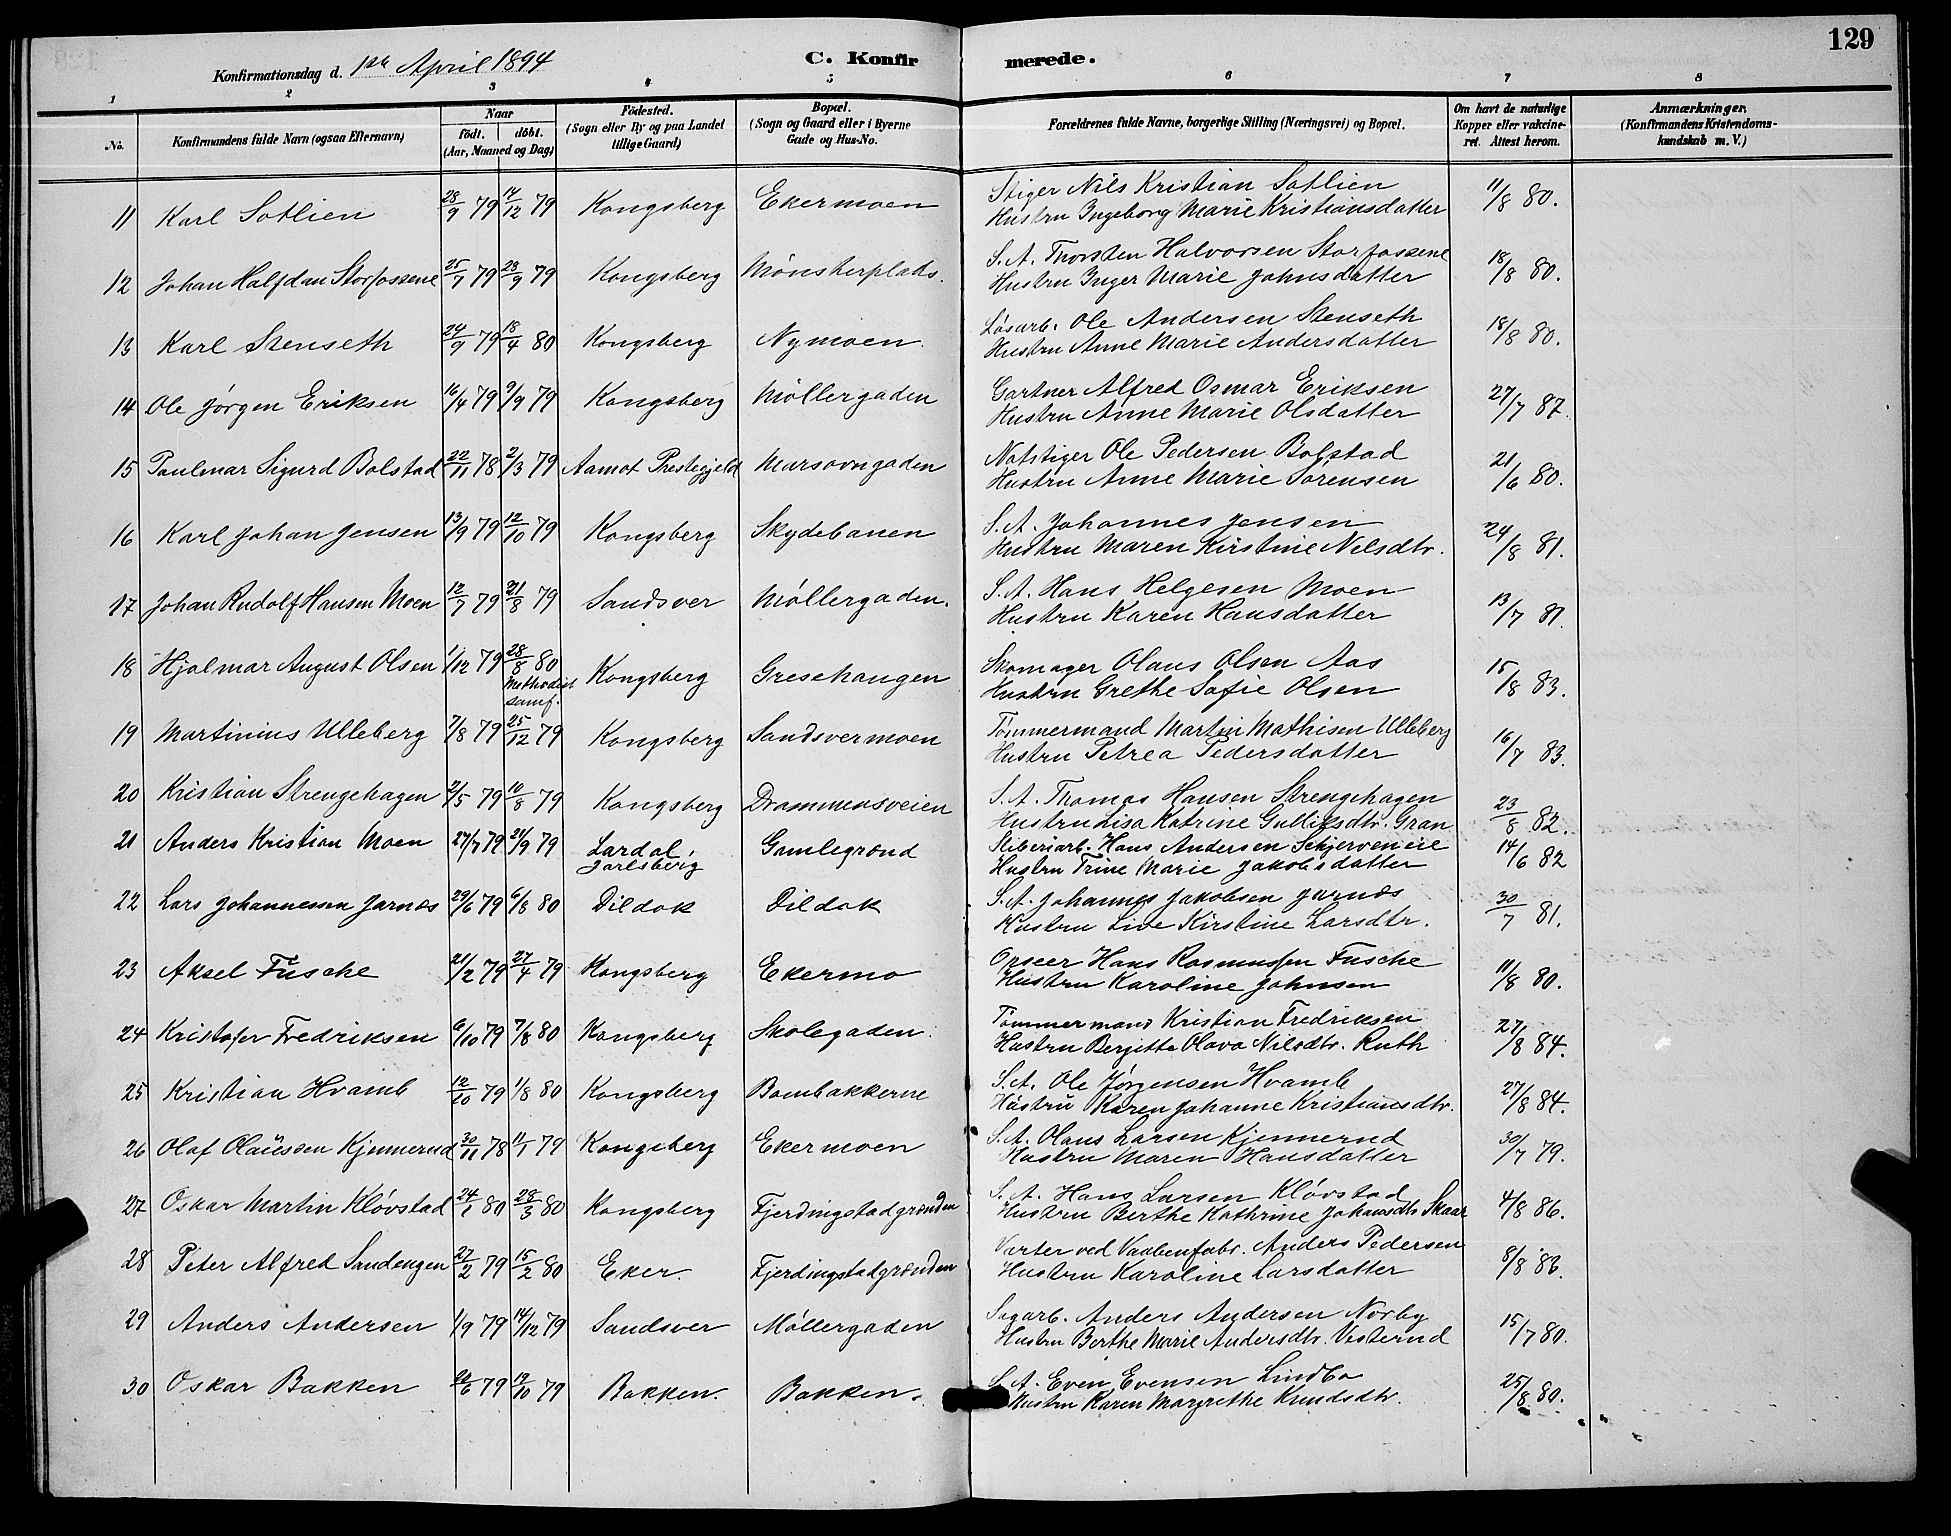 129
Konfirmationsdag d. 1ste April 1894
C. Konfirmerede.
1 2 3 4 5 6 7 8
No. Konfirmandens fulde Navn (ogsaa Efternavn) Naar født. døbt. (Aar, Maaned og Dag) Födested. (Sogn eller By og paa Landet tillige Gaard) Bopæl. (Sogn og Gaard eller i Byerne Gade og Hus-No. Forældrenes fulde Navne, borgerlige Stilling (Næringsvei) og Bopæl. Om havt de naturlige Kopper eller vakcineret. Attest herom. Anmærkninger. (Konfirmandens Kristendomskundskab m. V.)
11 Karl Sotlien 28/9 79 14/12 79 Kongsberg Ekermoen Stiger Nils Kristian Sotlien 11/8 80.
Hustru Ingeborg Marie Kristiansdatter
12 Johan Halfdan Storfossene 25/7 79 28/9 79 Kongsberg Mönsterplads. S. A. Thorsten Halvorsen Storfossene 18/8 80.
Hustru Inger Marie Johnsdatter
13 Karl Stenseth 24/9 79 18/4 80 Kongsberg Nymoen. Løsarb. Ole Andersen Stenseth 18/8 80.
Hustru Anne Marie Andersdatter
14 Ole Jørgen Eriksen 16/4 79 9/9 79 Kongsberg Møllergaden Gartner Alfred Osmar Eriksen 27/7 87.
Hustru Anne Marie Olsdatter
15 Paulmar Sigurd Bolstad 22/11 78 2/3 79 Aamot Prestegjeld Marsovngaden Natstiger Ole Pedersen Bolstad 21/6 80.
Hustru Anne Marie Sörensen
16 Karl Johan Jensen 13/9 79 12/10 79 Kongsberg Skydebanen S. A. Johannes Jensen 24/8 81.
Hustru Maren Kirstine Nilsdtr.
17 Johan Rudolf Hansen Moen 12/7 79 21/8 79 Sandsver Møllergaden. S. A. Hans Helgesen Moen 13/7 81.
Hustru Karen Hansdatter
18 Hjalmar August Olsen 1/12 79 28/8 80 Methodist samf. Kongsberg Gresehaugen Skomager Olaus Olsen Aas 15/8 83.
Hustru Grethe Sofie Olsen
19 Martinius Ulleberg 7/8 79 25/12 79 Kongsberg Sandsvermoen Tömmermand Martin Mathisen Ulleberg 16/7 83.
Hustru Petrea Pedersdatter
20 Kristian Strengehagen 2/5 79 10/8 79 Kongsberg Drammensveien S. A. Thomas Hansen Strengehagen 23/8 82.
Hustru Lisa Katrine Gulliksdtr. Gran
21 Anders Kristian Moen 27/7 79 21/9 79 Lardal, Jarlsberg Gamlegrend Sliberiarb. Hans Andersen Schjerveneie 14/6 82
Hustru Trine Marie Jakobsdatter
22 Lars Johannessen Jarnæs 29/6 79 6/8 80 Dildok Dildok S. A. Johannes Jakobsen Jarnæs 30/7 81.
Hustru Live Kirstine Larsdtr.
23 Aksel Fusche 21/2 79 27/4 79 Kongsberg Ekermo Opseer Hans Rasmussen Fusche 11/8 80.
Hustru Karoline Johnsen
24 Kristofer Fredriksen 6/10 79 7/8 80 Kongsberg Skolegaden. Tømmermand Kristian Fredriksen 27/8 84.
Hustru Bergitte Olava Nilsdtr. Ruth
25 Kristian Hvamb 12/10 79 1/8 80 Kongsberg Bombakkerne S. A. Ole Jørgensen Hvamb 27/8 84.
Hustru Karen Johanne Kristiansdtr.
26 Olaf Olaussen Kjennerud 30/11 78 11/1 79 Kongsberg Ekermoen S. A. Olaus Larsen Kjennerud 30/7 79.
Hustru Maren Hansdatter
27 Oskar Martin Kløvstad 24/1 80 28/3 80 Kongsberg Fjerdingstadgrænden S. A. Hans Larsen Kløvstad 4/8 86.
Hustru Berthe Kathrine Johansdtr. Skaar
28 Peter Alfred Sandengen 27/2 79 15/2 80 Eker. Fjerdingstadgrænden Varter ved Vaabenfabr. Anders Pedersen 8/8 86.
Hustru Karoline Larsdatter
29 Anders Andersen 1/9 79 14/12 79 Sandsver Møllergaden Sagarb. Anders Andersen Norby 15/7 80.
Hustru Berthe Marie Andersdtr. Visterud
30 Oskar Bakken 22/6 79 19/10 79 Bakken. Bakken. S. A. Even Evensen Lindbo 25/8 80.
Hustru Karen Margrethe Knudsdtr.